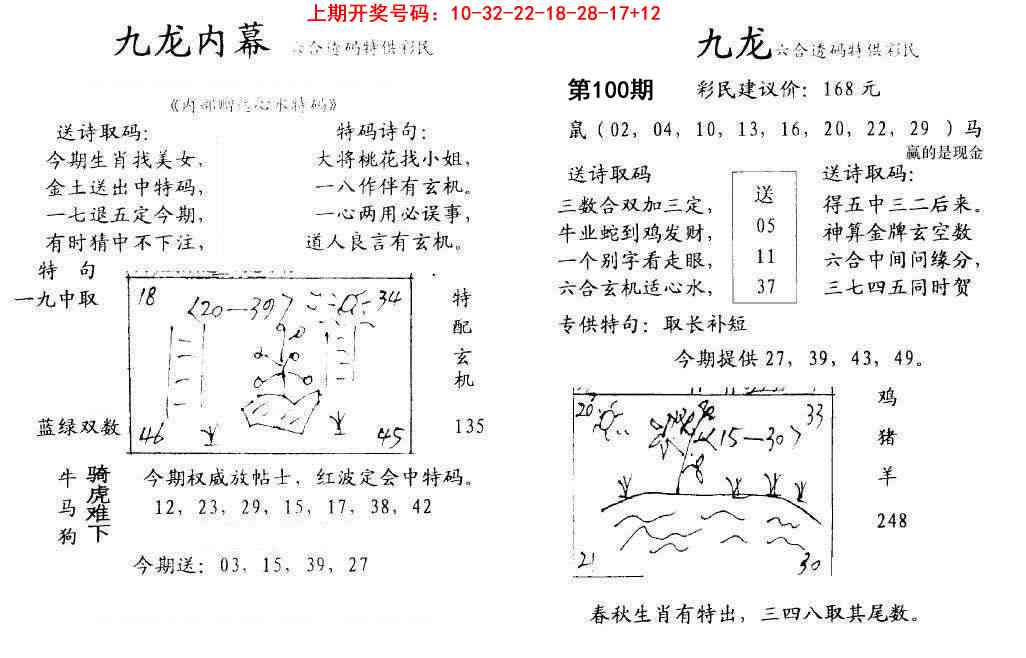 上期开奖号码：10-32-22-18-28-17+12
九龙内幕 六合透码特供彩民
送诗取码：
今期生肖找美女，
金土送出中特码，
一七退五定今期，
有时猜中不下注，
特码诗句：
大将桃花找小姐，
一八作伴有玄机。
一心两用必误事，
道人良言有玄机。
特 句
一九中取
蓝绿双数
18
〈20—39〉
34
46
45
特配玄机
135
牛马狗
骑虎难下
今期权威放帖士，红波定会中特码。
12，23，29，15，17，38，42
今期送：03，15，39，27
九龙 六合透码特供彩民
第100期 彩民建议价：168 元
鼠（02，04，10，13，16，20，22，29 ）马
赢的是现金
送诗取码
三数合双加三定，
牛业蛇到鸡发财，
一个别字看走眼，
六合玄机适心水，
送
05
11
37
送诗取码：
得五中三二后来。
神算金牌玄空数
六合中间问缘分，
三七四五同时贺
专供特句：取长补短
今期提供 27，39，43，49。
20
33
〈15—30〉
21
30
鸡
猪
羊
248
春秋生肖有特出，三四八取其尾数。